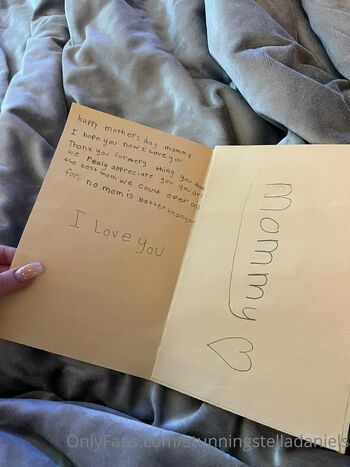 happy mothers day mommy
I hope you now I Love you
Thank you for every thing you
we Realy appreciate you you are
the best mom we could ever
for, no mom is better than you
I Love you
Mommy
OnlyFans.com/stunningstelladaniels